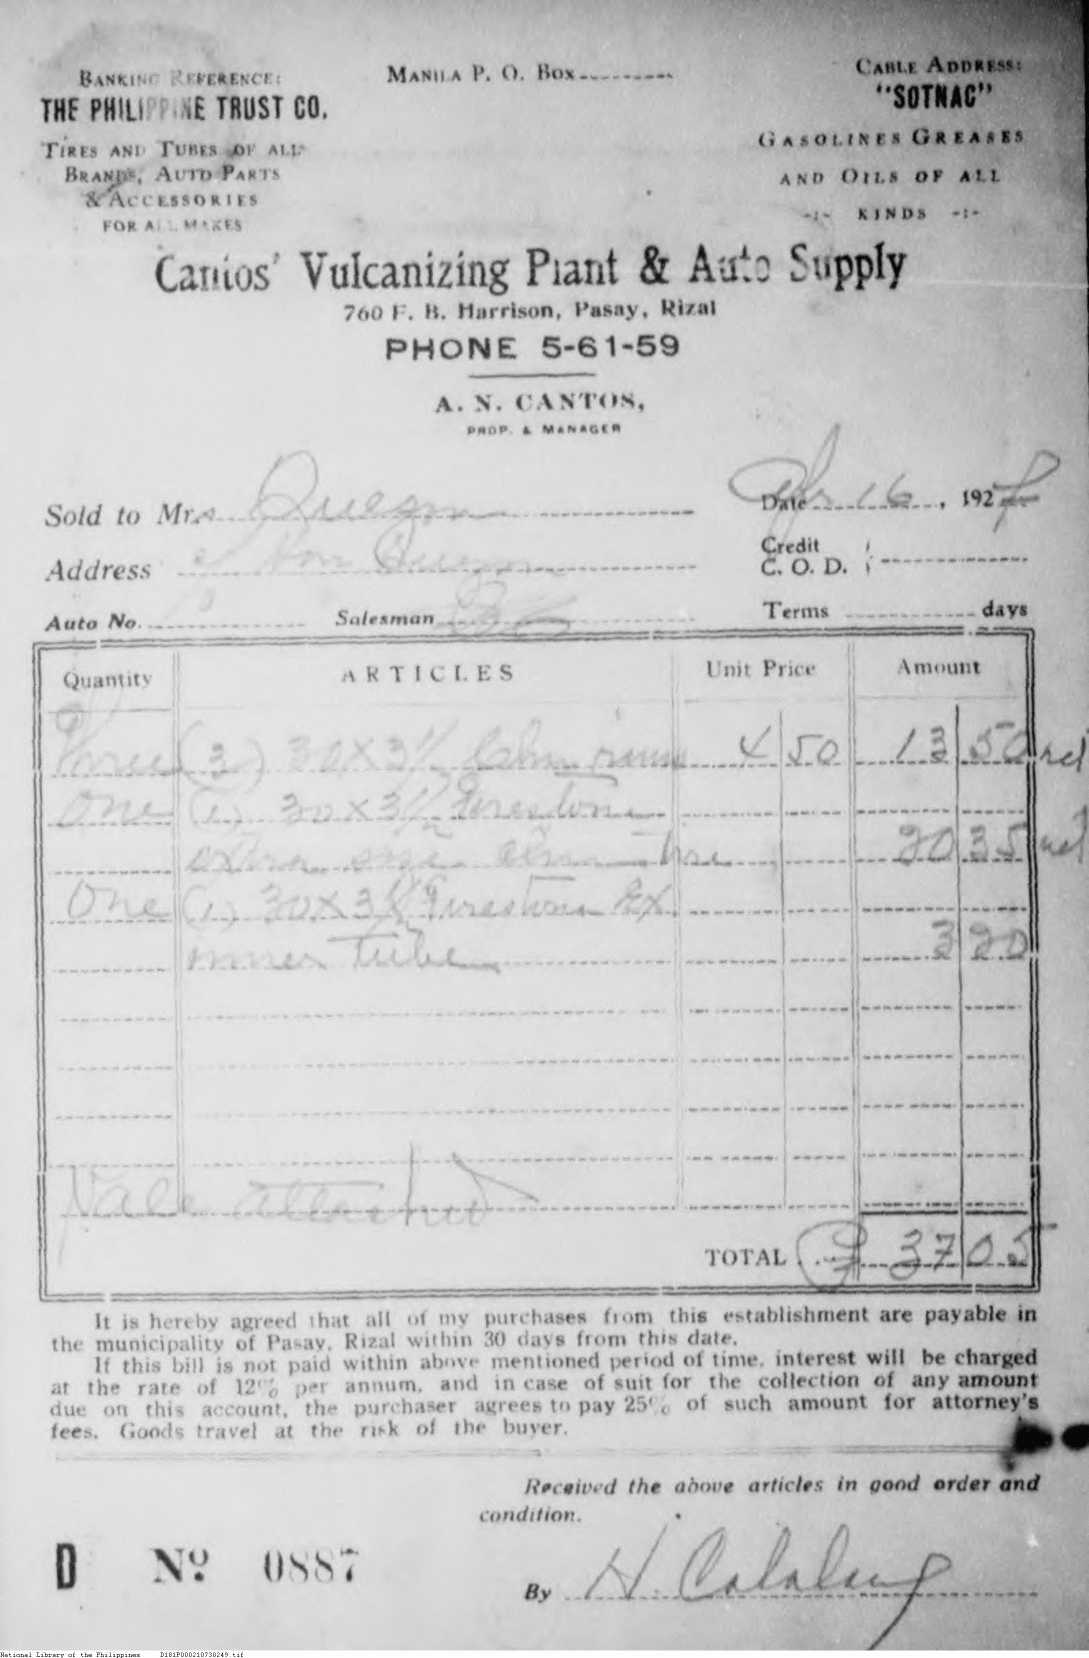 BANKING REFERENCE:
THE PHILIPPINE TRUST CO.
TIRES AND TUBES OF ALL
BRANDS, AUTO PARTS
& ACCESSORIES
FOR ALL MAKES
MANILA P. O. BOX
CABLE ADDRESS:
"SOTNAC"
GASOLINES GREASES
AND OILS OF ALL
-:- KINDS -:-
Cantos' Vulcanizing Plant & Auto Supply
760 F. B. Harrison, Pasay, Rizal
PHONE 5-61-59
A. N. CANTOS,
PROP. & MANAGER
Sold to Mrs Quezon
Date Apr 16, 1927
Address Hon Quezon
Credit
C. O. D.
Auto No. Salesman
Terms days
Quantity ARTICLES Unit Price Amount
Three (3) 30x3½ rium 4 50 13 50 net
One (1) 30x3½ Firestone
extra size tire 20 35 net
One (1) 30x3½ Firestone Ex.
inner tube 3 20
Vale attached
TOTAL ₱ 37 05
It is hereby agreed that all of my purchases from this establishment are payable in
the municipality of Pasay, Rizal within 30 days from this date.
If this bill is not paid within above mentioned period of time, interest will be charged
at the rate of 12% per annum, and in case of suit for the collection of any amount
due on this account, the purchaser agrees to pay 25% of such amount for attorney's
fees. Goods travel at the risk of the buyer.
Received the above articles in good order and
condition.
D Nº 0887
By H. Calalang
National Library of the Philippines D181P000210738249.tif